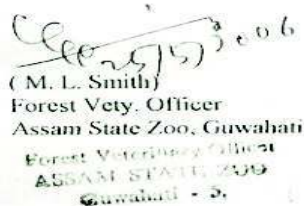 25/5/2006
( M. L. Smith)
Forest Vety. Officer
Assam State Zoo, Guwahati
Forest Veterinary Officer
ASSAM STATE ZOO
Guwahati - 5.